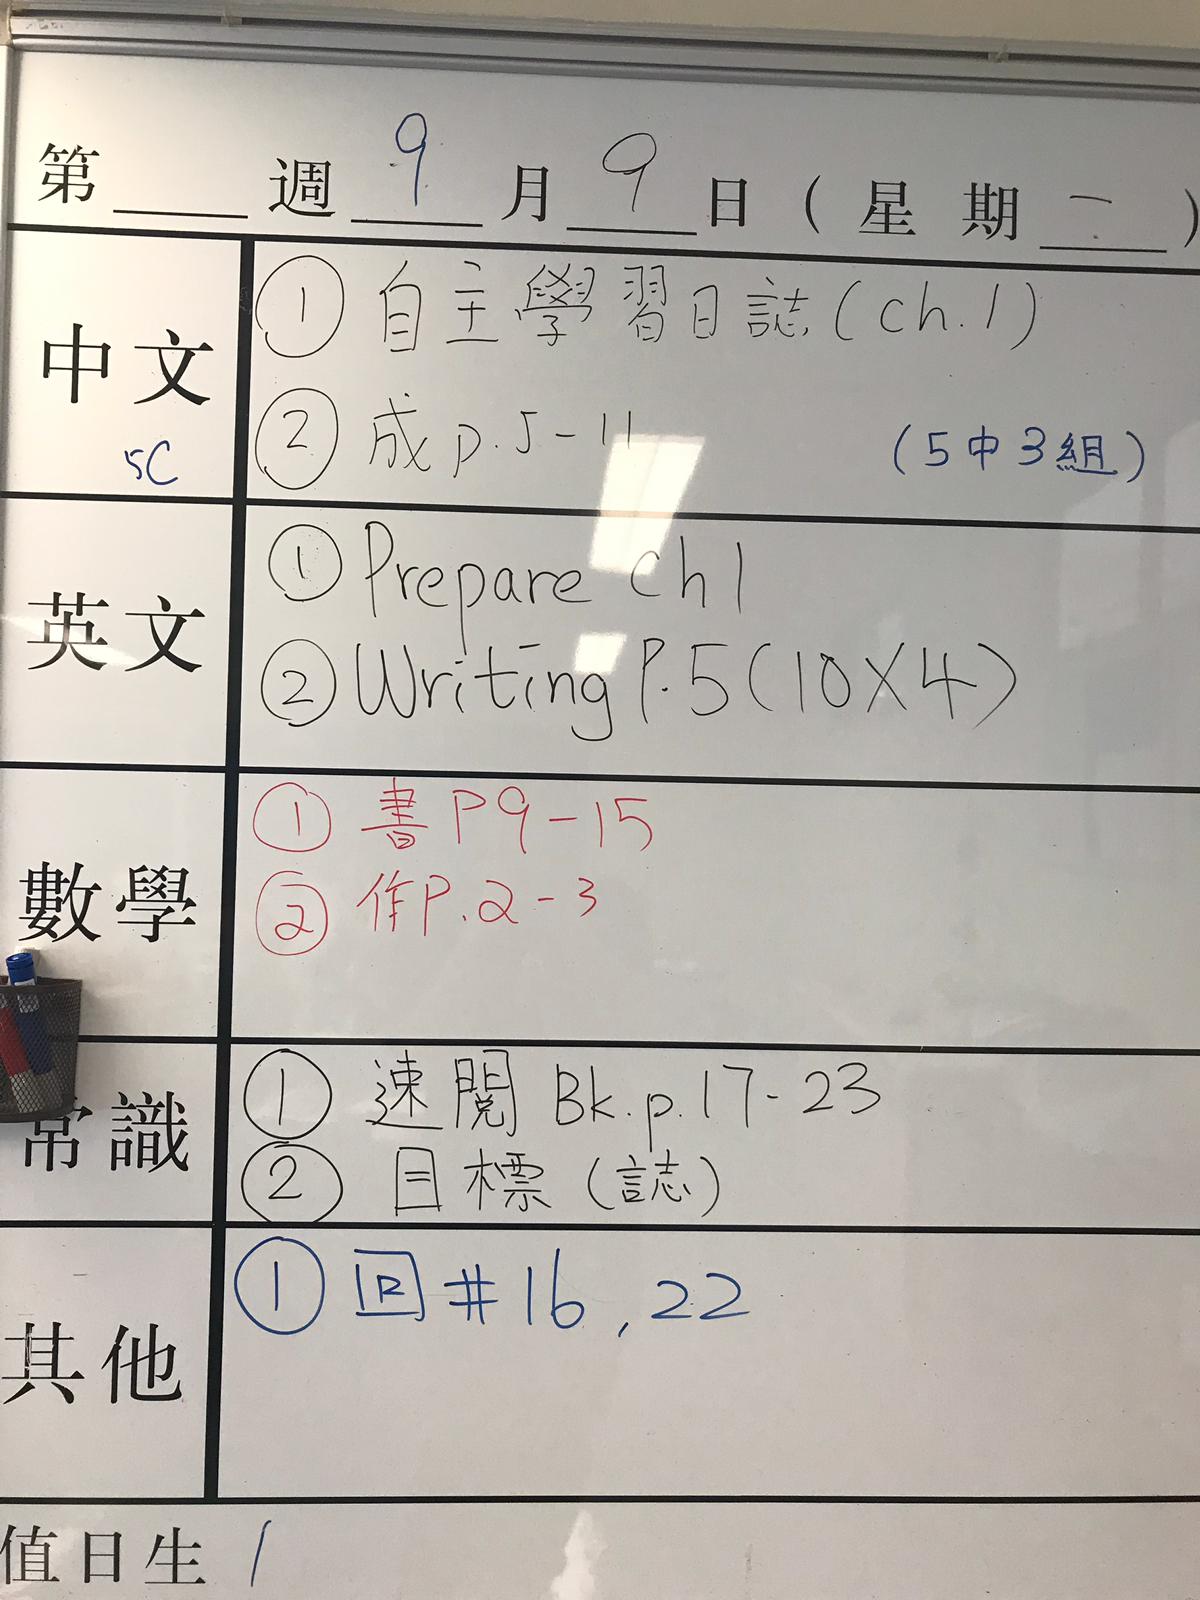 第 週 9 月 9 日 ( 星 期 二 )
中文
5C
① 自主學習日誌 (ch.1)
② 成 p.5-11 (5中3組)
英文
① Prepare ch 1
② Writing P.5 (10X4)
數學
① 書 P9-15
② 作P.2-3
常識
① 速閱 Bk.p.17-23
② 目標 (誌)
其他
① 回 #16, 22
值日生 1